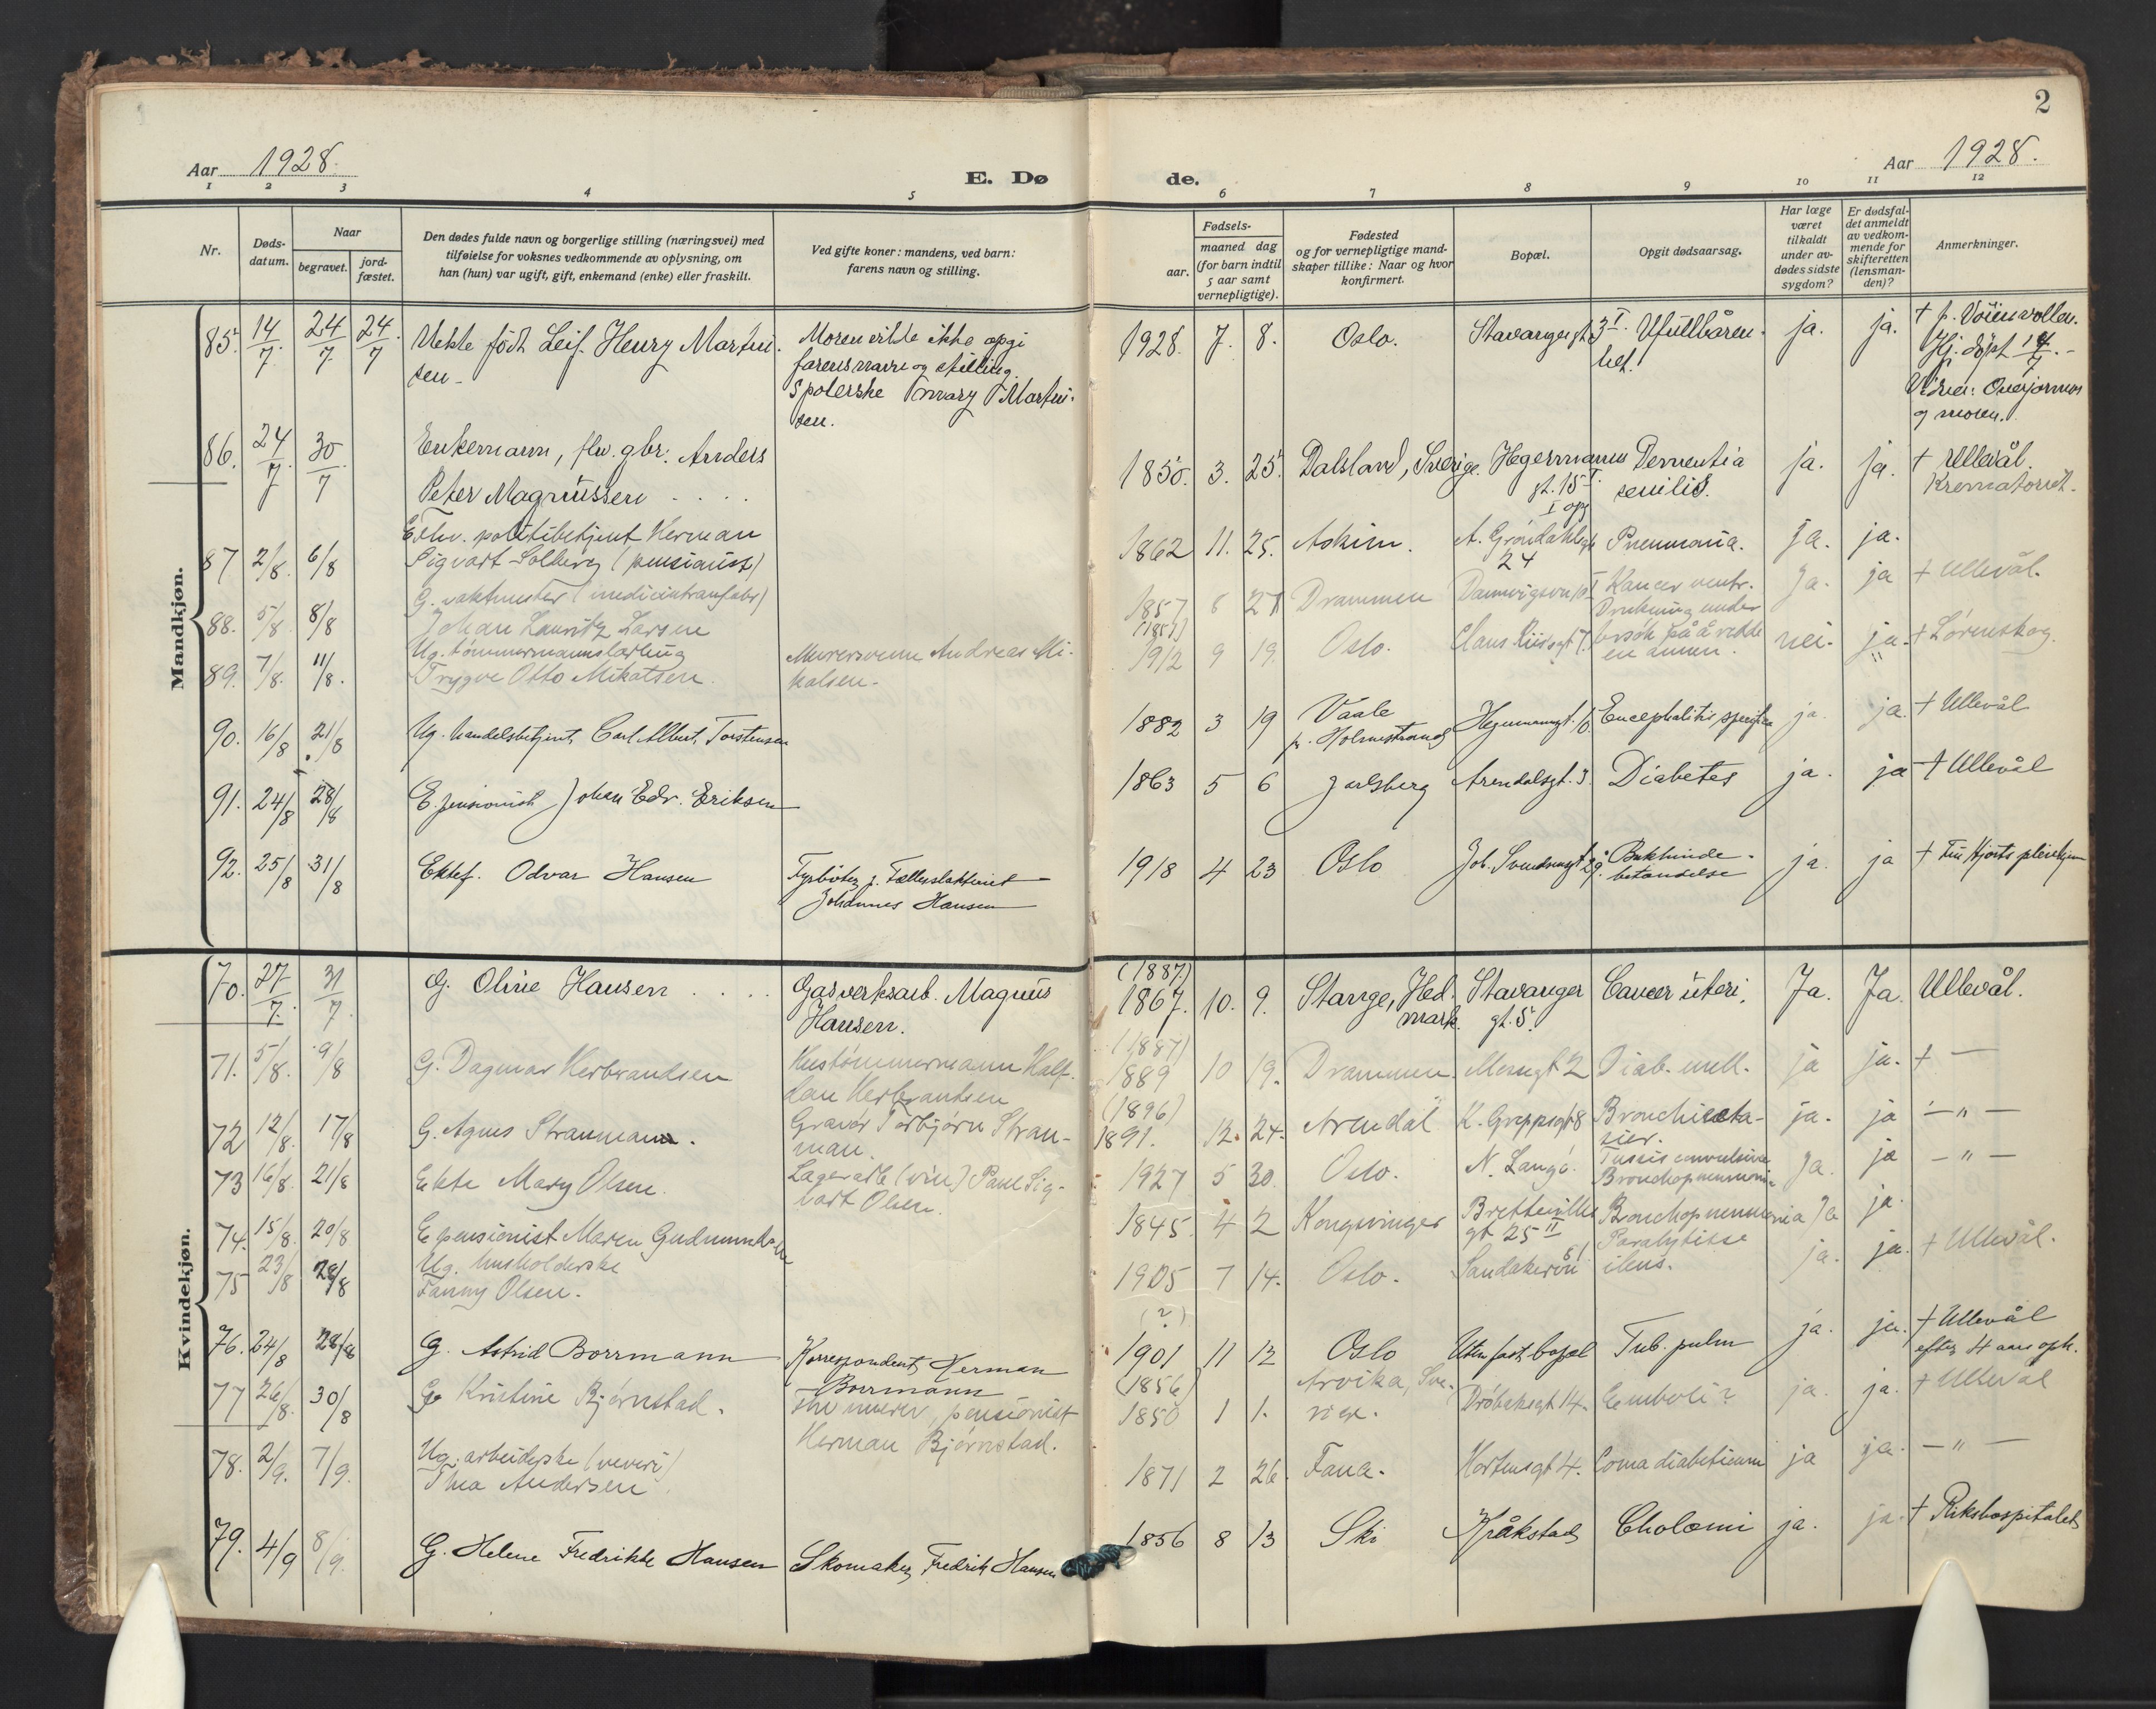 2
Aar 1928.
E. Dø
de.
Aar 1928.
1 2 3 4 5 6 7 8 9 10 11 12
Nr.
Døds-datum.
Naar
begravet.
jord-fæstet.
Den dødes fulde navn og borgerlige stilling (næringsvei) med
tilføielse for voksnes vedkommende av oplysning, om
han (hun) var ugift, gift, enkemand (enke) eller fraskilt.
Ved gifte koner: mandens, ved barn:
farens navn og stilling.
Fødsels-
aar.
maaned dag
(for barn indtil
5 aar samt
vernepligtige).
Fødested
og for vernepligtige mand-
skaper tillike: Naar og hvor
konfirmert.
Bopæl.
Opgit dødsaarsag.
Har læge
været
tilkaldt
under av-
dødes sidste
sygdom?
Er dødsfal-
det anmeldt
av vedkom-
mende for
skifteretten
(lensman-
den)?
Anmerkninger.
Mandkjøn.
85. 14/7. 24/7 24/7 Uekte født Leif Henry Martin-
sen
Moren vilde ikke opgi
farens navn og stilling.
Spolerske Mary Martin-
sen.
1928. 7. 8. Oslo. Stavangergt 3 I. Ufullbåren-
het. ja. ja. † p. Vöienvollen.
Hj. döpt
og moren.
86. 24/7. 30/7 Enkemann, fhv. gbr. Anders
Peter Magnussen . . . .
1850. 3. 25. Dalsland, Sverige. Hegermanns
gt. 15 I.
I opg
Dementia
senilis. ja. ja. † Ullevål.
Krematoriet.
87 2/8. 6/8 E. fhv. politibetjent Herman
Sigvart Solberg (pensionist)
1862 11. 25. Askim. A. Gröndahlsgt
24 Pneumonia. ja. ja.
88. 5/8. 8/8 G. vaktmester (medicintranfabr)
Johan Lauritz Larsen
(1857)
1857 6 27 Drammen Kancer ventr. Ja. ja † Ullevål.
89. 7/8. 11/8. Ug. tömmermannslærling
Trygve Otto Mikalsen.
Murersvenn Andreas Mi-
kalsen.
1912 9 19. Oslo. Claus Riisgt 7. Drukning under
forsök på å redde
en annen. nei. ja. † Lörenskog.
90. 16/8 21/8 Ug. handelsbetjent Carl Albert Torstensen
1882 3 19 Våale
pr. Holmestrand Hegermannsgt. 10. Encephalitis specifica ja. ja. † Ullevål
91. 24/8 28/8 E. pensionist Johan Edv. Eriksen
1863 5 6 Jarlsberg Arendalsgt. 3. Diabetes ja. ja † Ullevål
92. 25/8 31/8 Ektef. Odvar Hansen
Fyrböter p. Fellesslakteriet
Johannes Hansen
1918 4 23 Oslo Joh. Svendsensgt 29. Bukhinde-
betændelse ja. ja † Hjorts pleiehjem
Kvindekjøn.
70. 27/7. 31/7. G. Oline Hansen . . . . Gasverksarb. Magnus
Hansen.
(1887)
1867. 10. 9. Stange, Hed-
mark. Stavanger
gt. 5. Cancer uteri. Ja. Ja. Ullevål.
71. 5/8. 9/8 G. Dagmar Herbrandsen Hustömmermann Half-
dan Herbrandsen
(1887)
1889 10 19. Drammen. Mossgt 2 Diab. mell. ja ja. † —
72 12/8. 17/8 G. Agnes Stranmann. Gravör Torbjörn Stran-
man.
(1896)
1891. 12. 24. Arendal K. Greppsgt 8 Bronchiecta-
sier. ja. ja — " —
73 16/8. 21/8 Ekte Mary Olsen. Lagerarb (vin) Paul Sig-
vart Olsen.
1927 5 30. Oslo. N. Langö. Tussis convulsiva
Bronchopneumonia Ja. ja — " —
74. 15/8. 20/8 E pensionist Maren Gudmundsen
1845. 4 2 Kongsvinger Brettevilles
gt 25 II Bronchopneumonia Ja ja.
75 23/8 28/8 Ug. husholderske
Fanny Olsen.
1905 7 14. Oslo. Sandakervn 61 Paralytisse
ileus. ja. ja. † Ullevål.
76. 24/8 28/8 G. Astrid Borrmann Korrespondent Herman
Borrmann
(?)
1901 11 12 Oslo Uten fast bopæl Tub. pulm ja. ja. † Ullevål
efter 4 aars oph.
77 26/8. 30/8 G Kristine Bjørnstad. fhv murer, pensionist
Herman Bjørnstad.
(1856)
1850 1 1. Arvika, Sve-
rige. Dröbaksgt 14. Emboli? ja. ja. † Ullevål
78. 2/9. 7/9. Ug. arbeiderske (veveri)
Thea Andersen.
1871 2 26. Fana. Hortensgt 4. Coma diabeticum ja ja. — " —
79. 4/9 8/9. G. Helene Fredrikke Hansen Skomaker Fredrik Hansen
1856 8 13 Ski Kråkstad Cholæmi ja. ja. † Rikshospitalet